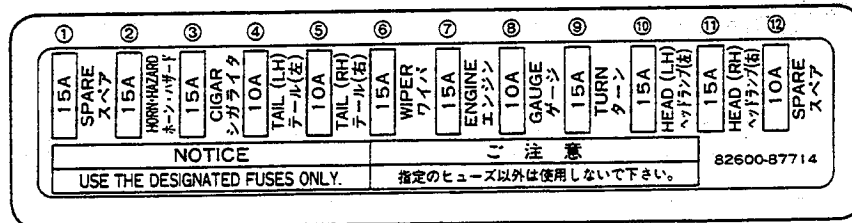 ① ② ③ ④ ⑤ ⑥ ⑦ ⑧ ⑨ ⑩ ⑪ ⑫
15A
SPARE
スペア
15A
HORN·HAZARD
ホーン·ハザード
15A
CIGAR
シガライタ
10A
TAIL (LH)
テール(左)
10A
TAIL (RH)
テール(右)
15A
WIPER
ワイパ
15A
ENGINE
エンジン
10A
GAUGE
ゲージ
15A
TURN
ターン
15A
HEAD (LH)
ヘッドランプ(左)
15A
HEAD (RH)
ヘッドランプ(右)
10A
SPARE
スペア
NOTICE
USE THE DESIGNATED FUSES ONLY.
ご注意
指定のヒューズ以外は使用しないで下さい。
82600-87714